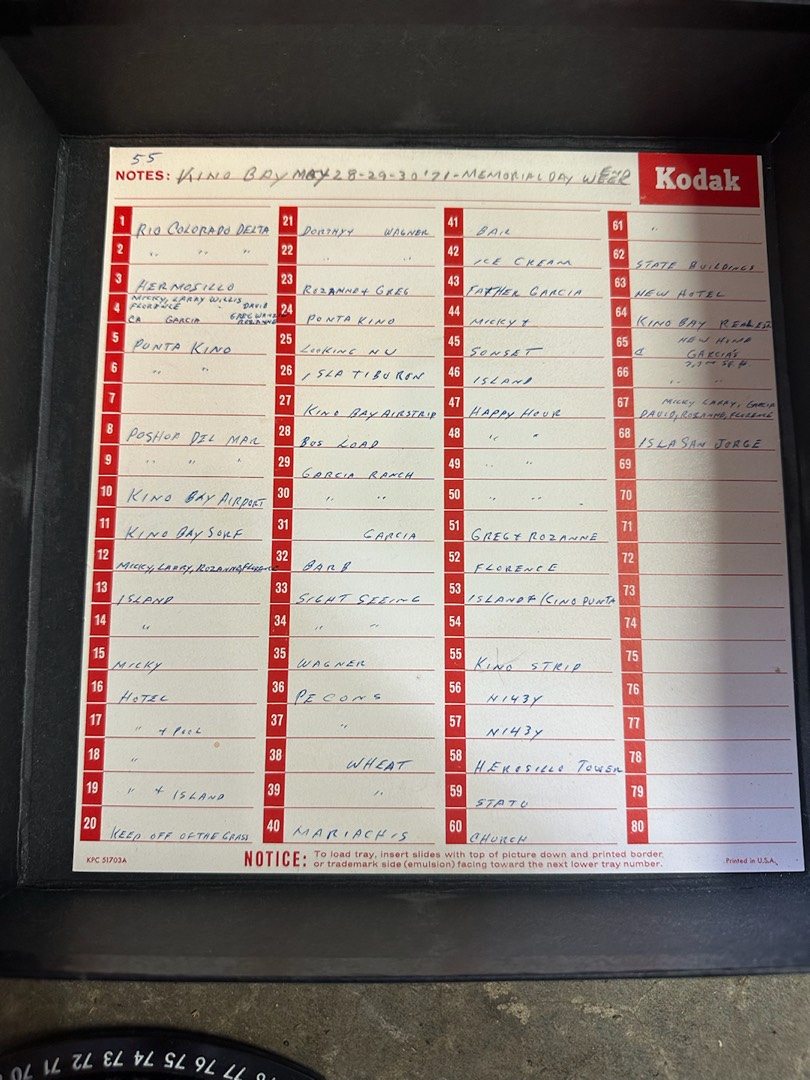 55
NOTES: KINO BAY MAY 28-29-30 '71 - MEMORIAL DAY WEEK
Kodak
1 RIO COLORADO DELTA
2 " " "
3 HERMOSILLO
4 MICKY, LARRY WILLIS DAVID
FLORENCE
CA GARCIA GREG ROZANNE
5 PUNTA KINO
6 " "
7
8 POSHOP DEL MAR
9 " " "
10 KINO BAY AIRPORT
11 KINO BAY SURF
12 MICKY, LARRY, ROZANNE, FLORENCE
13 ISLAND
14 "
15 MICKY
16 HOTEL
17 " + POOL
18 "
19 " + ISLAND
20 KEEP OFF OF THE GRASS
21 DORTHY + WAGNER
22 " "
23 ROZANNE + GREG
24 PONTA KINO
25 LOOKING NW
26 ISLA TIBURON
27 KINO BAY AIRSTRIP
28 BUS LOAD
29 GARCIA RANCH
30 " "
31 GARCIA
32 BARB
33 SIGHT SEEING
34 " "
35 WAGNER
36 PECONS
37 "
38 WHEAT
39 "
40 MARIACHIS
41 BAR
42 ICE CREAM
43 FATHER GARCIA
44 MICKY +
45 SUNSET
46 ISLAND
47 HAPPY HOUR
48 " "
49 " "
50 " "
51 GREG + ROZANNE
52 FLORENCE
53 ISLAND + KINO PUNTA
54
55 KINO STRIP
56 N143Y
57 N143Y
58 HEROSILLO TOWER
59 STATU
60 CHURCH
61 "
62 STATE BUILDINGS
63 NEW HOTEL
64 KINO BAY
65 NEW HOME
GARCIA'S
66 " "
67 MICKY LARRY, GARCIA
DAVID, ROZANNE, FLORENCE
68 ISLA SAN JORGE
69
70
71
72
73
74
75
76
77
78
79
80
KPC 51703A
NOTICE: To load tray, insert slides with top of picture down and printed border
or trademark side (emulsion) facing toward the next lower tray number.
Printed in U.S.A.
70 71 72 73 74 75 76 77